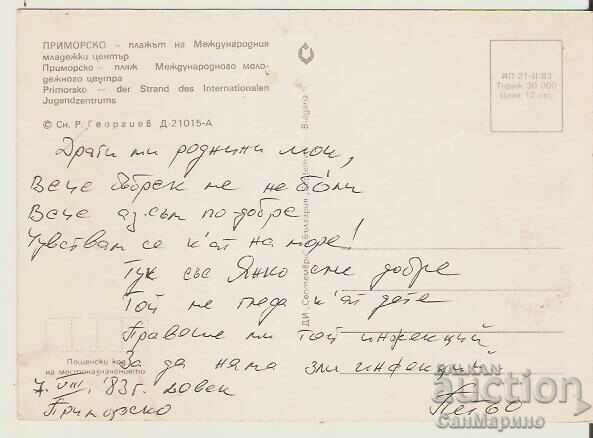 ПРИМОРСКО – плажът на Международния
младежки център
Приморско – пляж Международного моло-
дежного центра
Primorsko — der Strand des Internationalen
Jugendzentrums
© Сн. Р. Георгиев Д-21015-А
ДП 21-II/83
Тираж 30 000
Цена 12 ст.
ДИ „Септември“ България
Bulgaria
Драги ми роднини мои,
Вече бъбрек ме не боли
Вече аз съм по-добре
Чувствам се к'ат на море!
Тук със Янко сме добре
Той ме гледа к'ат дете
Правеше ми той инжекций
За да няма зли инфекций
Пощенски код
на местоназначението
7. VIII. '83г. довек
Приморско
Петьо
BALKAN
auction
СанМарино